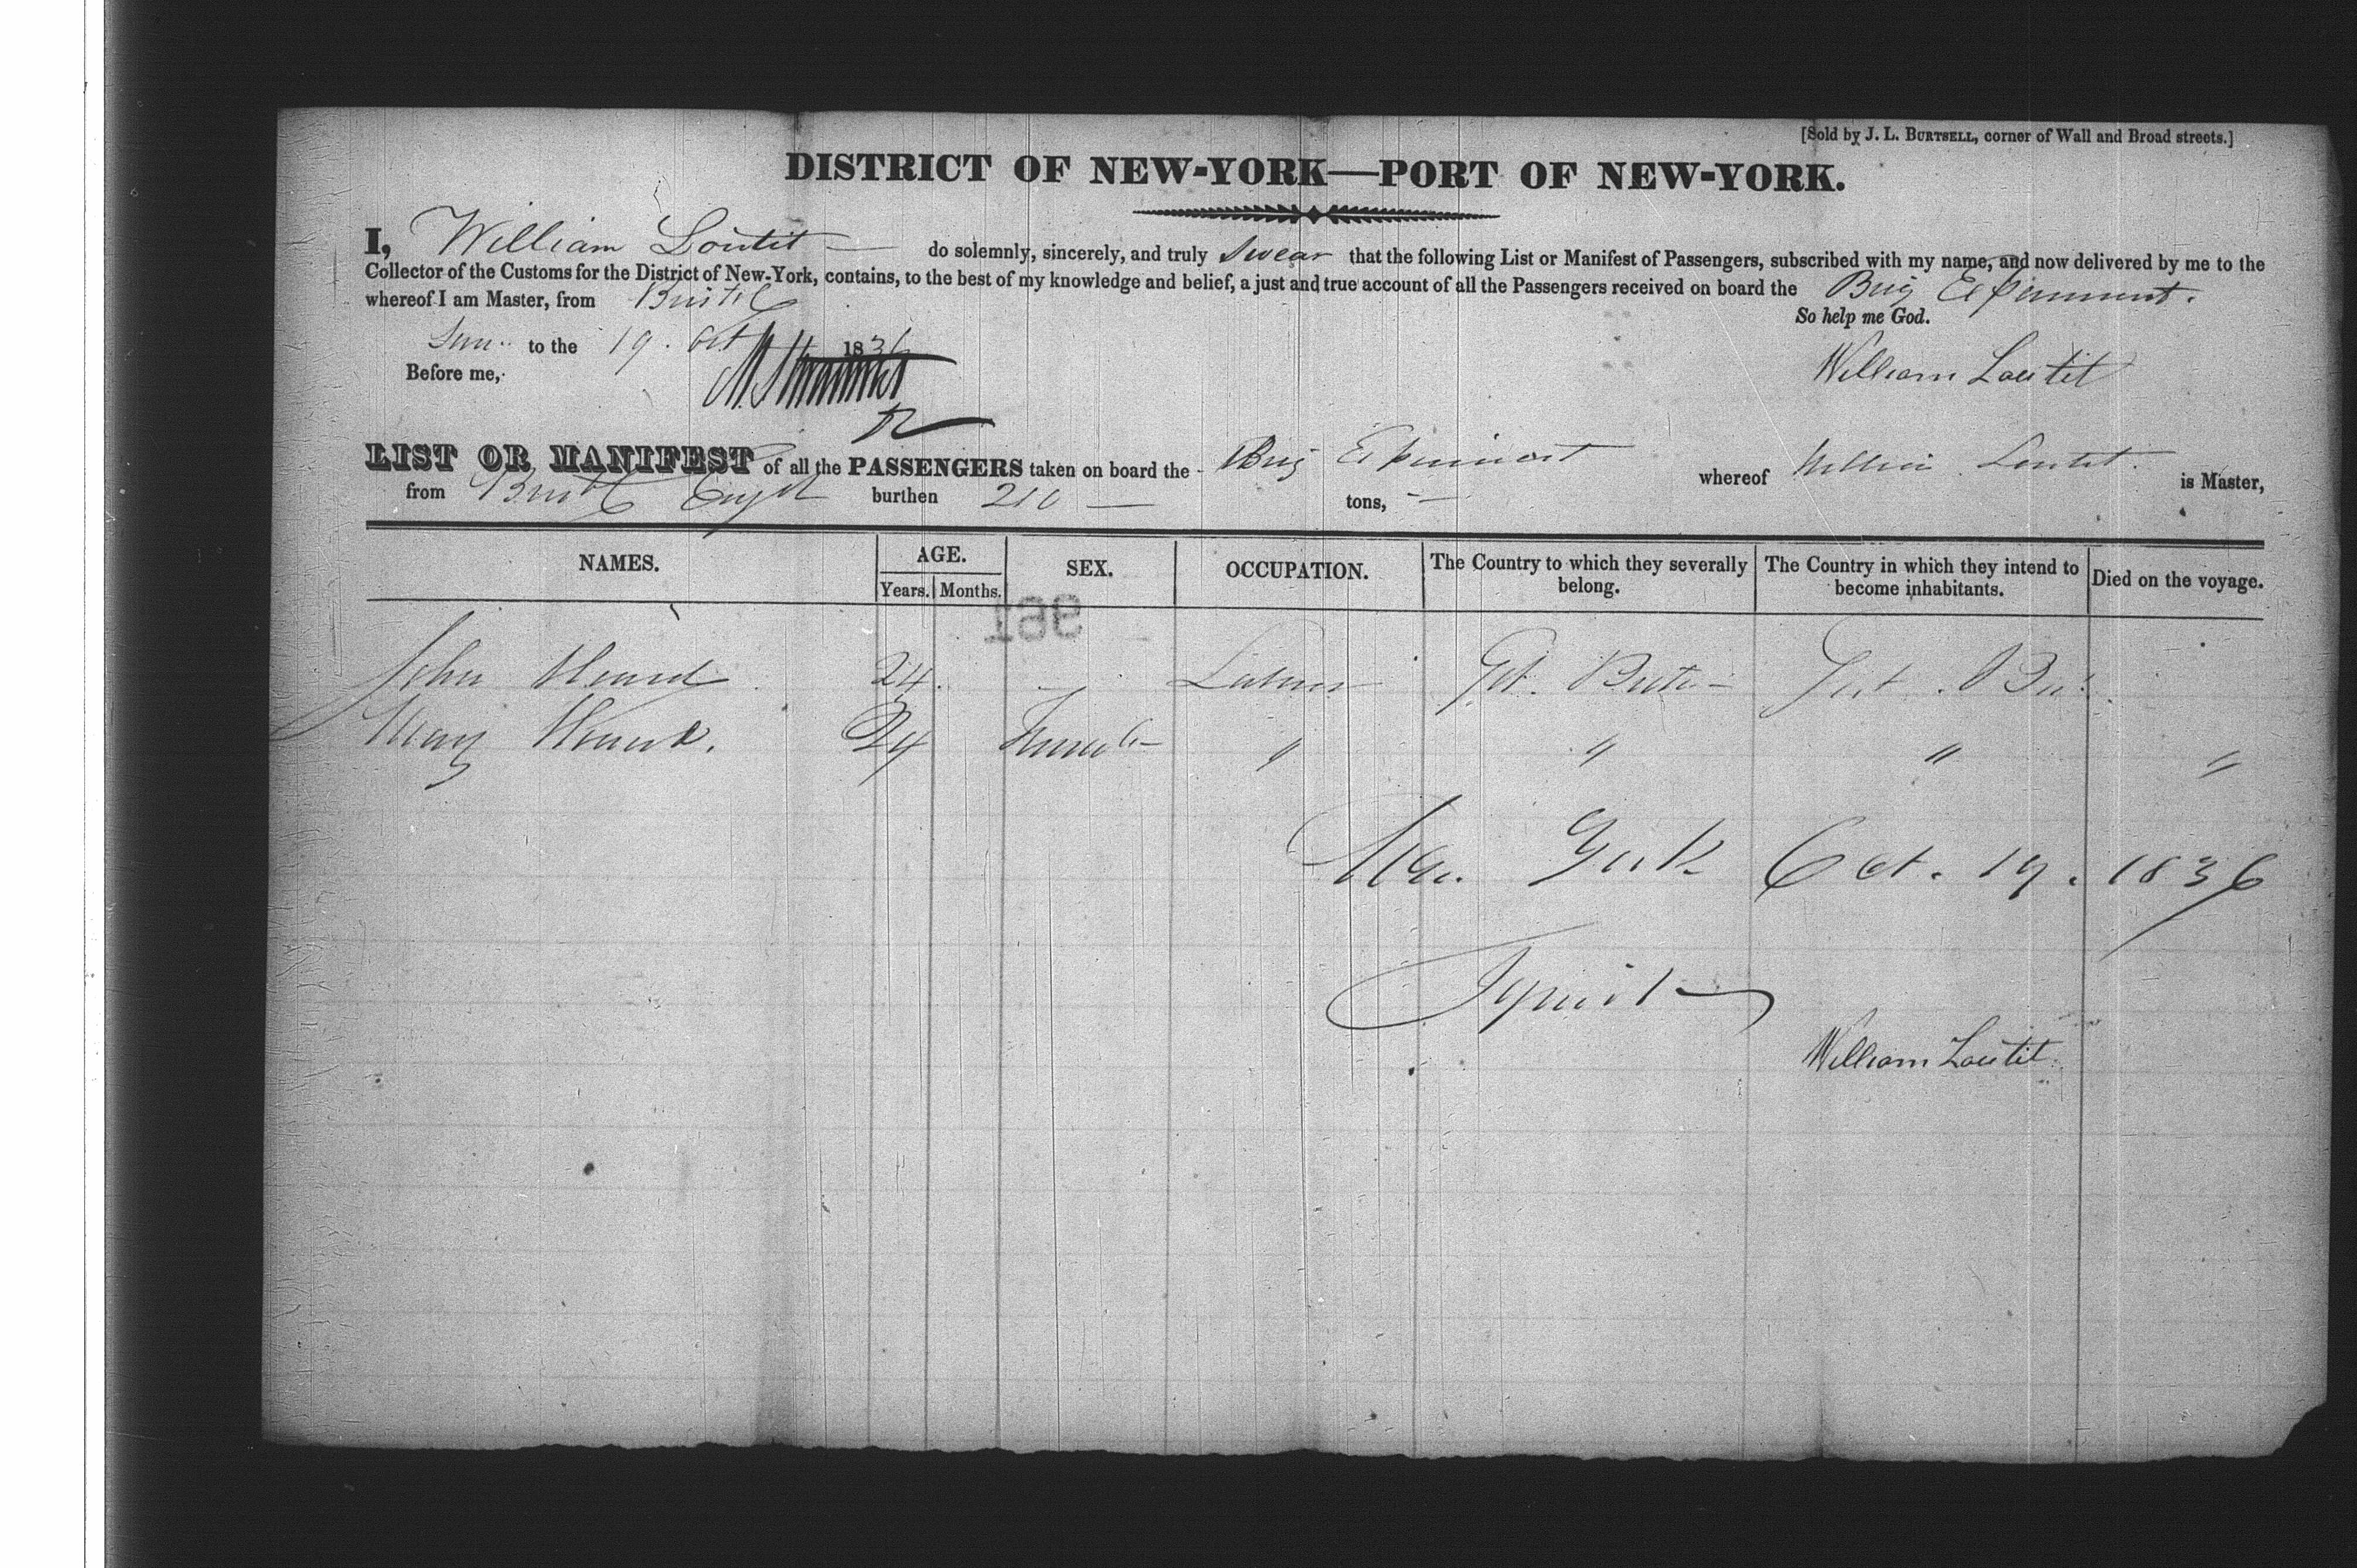 [Sold by J. L. BURTSELL, corner of Wall and Broad streets.]
DISTRICT OF NEW-YORK—PORT OF NEW-YORK.
I, William Loutit do solemnly, sincerely, and truly swear that the following List or Manifest of Passengers, subscribed with my name, and now delivered by me to the
Collector of the Customs for the District of New-York, contains, to the best of my knowledge and belief, a just and true account of all the Passengers received on board the Brig Experiment.
whereof I am Master, from Bristol
So help me God.
to the 19. Oct 1836
William Loutit
Before me,
LIST OR MANIFEST of all the PASSENGERS taken on board the Brig Experiment whereof William Loutit is Master,
from Bristol burthen 210 tons,
NAMES. AGE. SEX. OCCUPATION. The Country to which they severally belong. The Country in which they intend to become inhabitants. Died on the voyage.
Years. Months.
196
John 24. Gt. Gt.
Mary 24 Female " " " "
New York Oct. 19. 1836
William Loutit